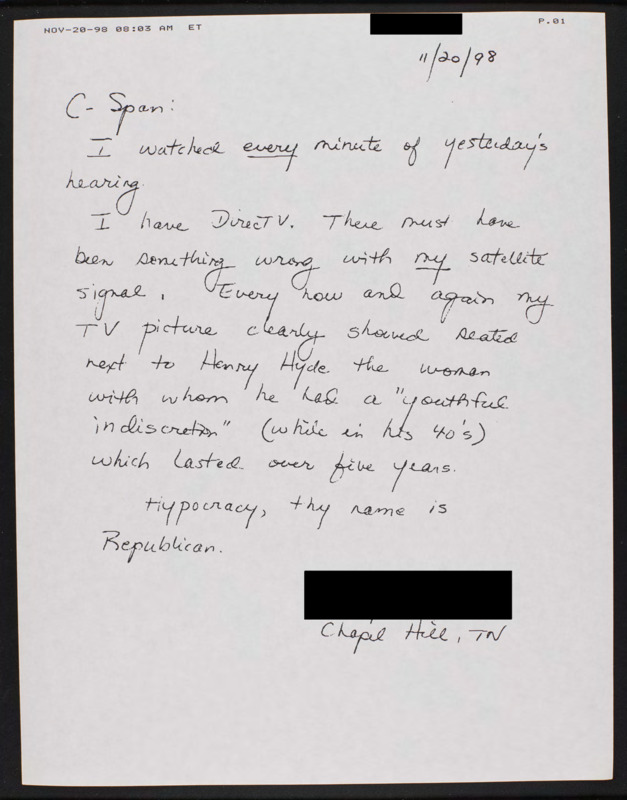 NOV-20-98 08:03 AM ET P.01
11/20/98
C-Span:
I watched every minute of yesterday's
hearing.
I have DirecTV. There must have
been something wrong with my satellite
signal. Every now and again my
TV picture clearly showed seated
next to Henry Hyde the woman
with whom he had a "youthful
indiscretion" (while in his 40's)
which lasted over five years.
Hypocracy, thy name is
Republican.
Chapel Hill, TN